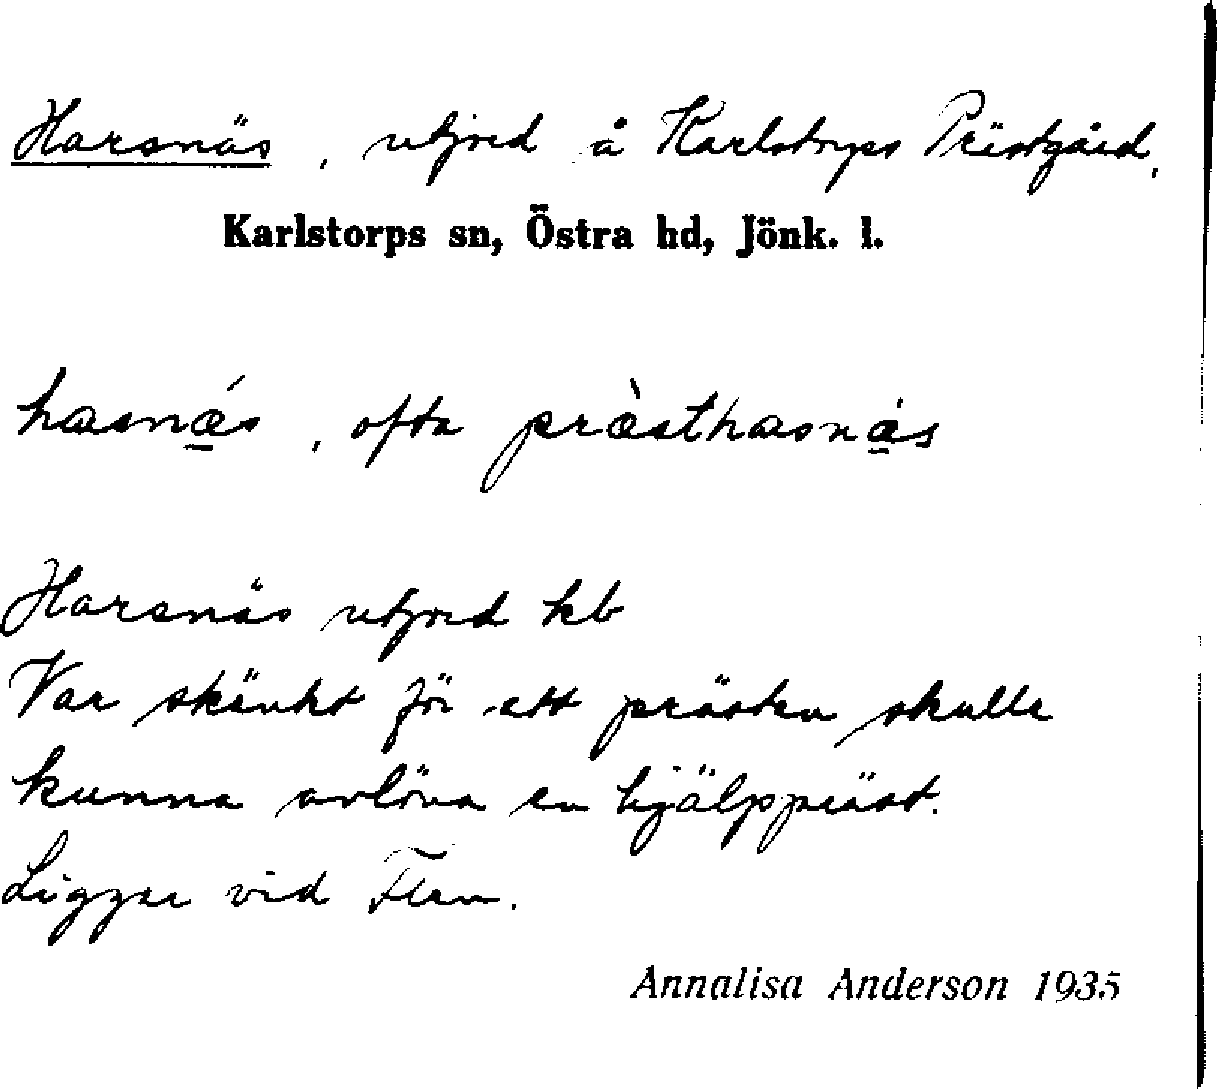 Harsnäs, utjord å Karlstorps Prästgård,
Karlstorps sn, Östra hd, Jönk. l.
hasnǽ̲s, ofta præ̀sthasnǽ̲s
Harsnäs utjord kb
Var skänkt för att prästen skulle
kunna avlöna en hjälppräst.
Ligger vid Flen.
Annalisa Anderson 1935